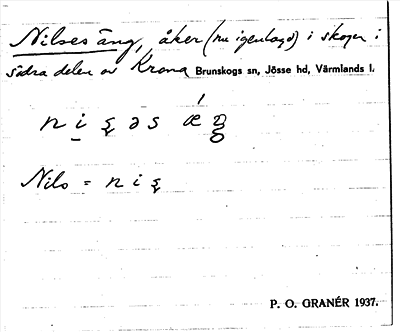 Nilses äng, åker (nu igenlagd) i skogen i
södra delen av Krona Brunskogs sn, Jösse hd, Värmlands l.
Nils =
P. O. GRANÉR 1937.